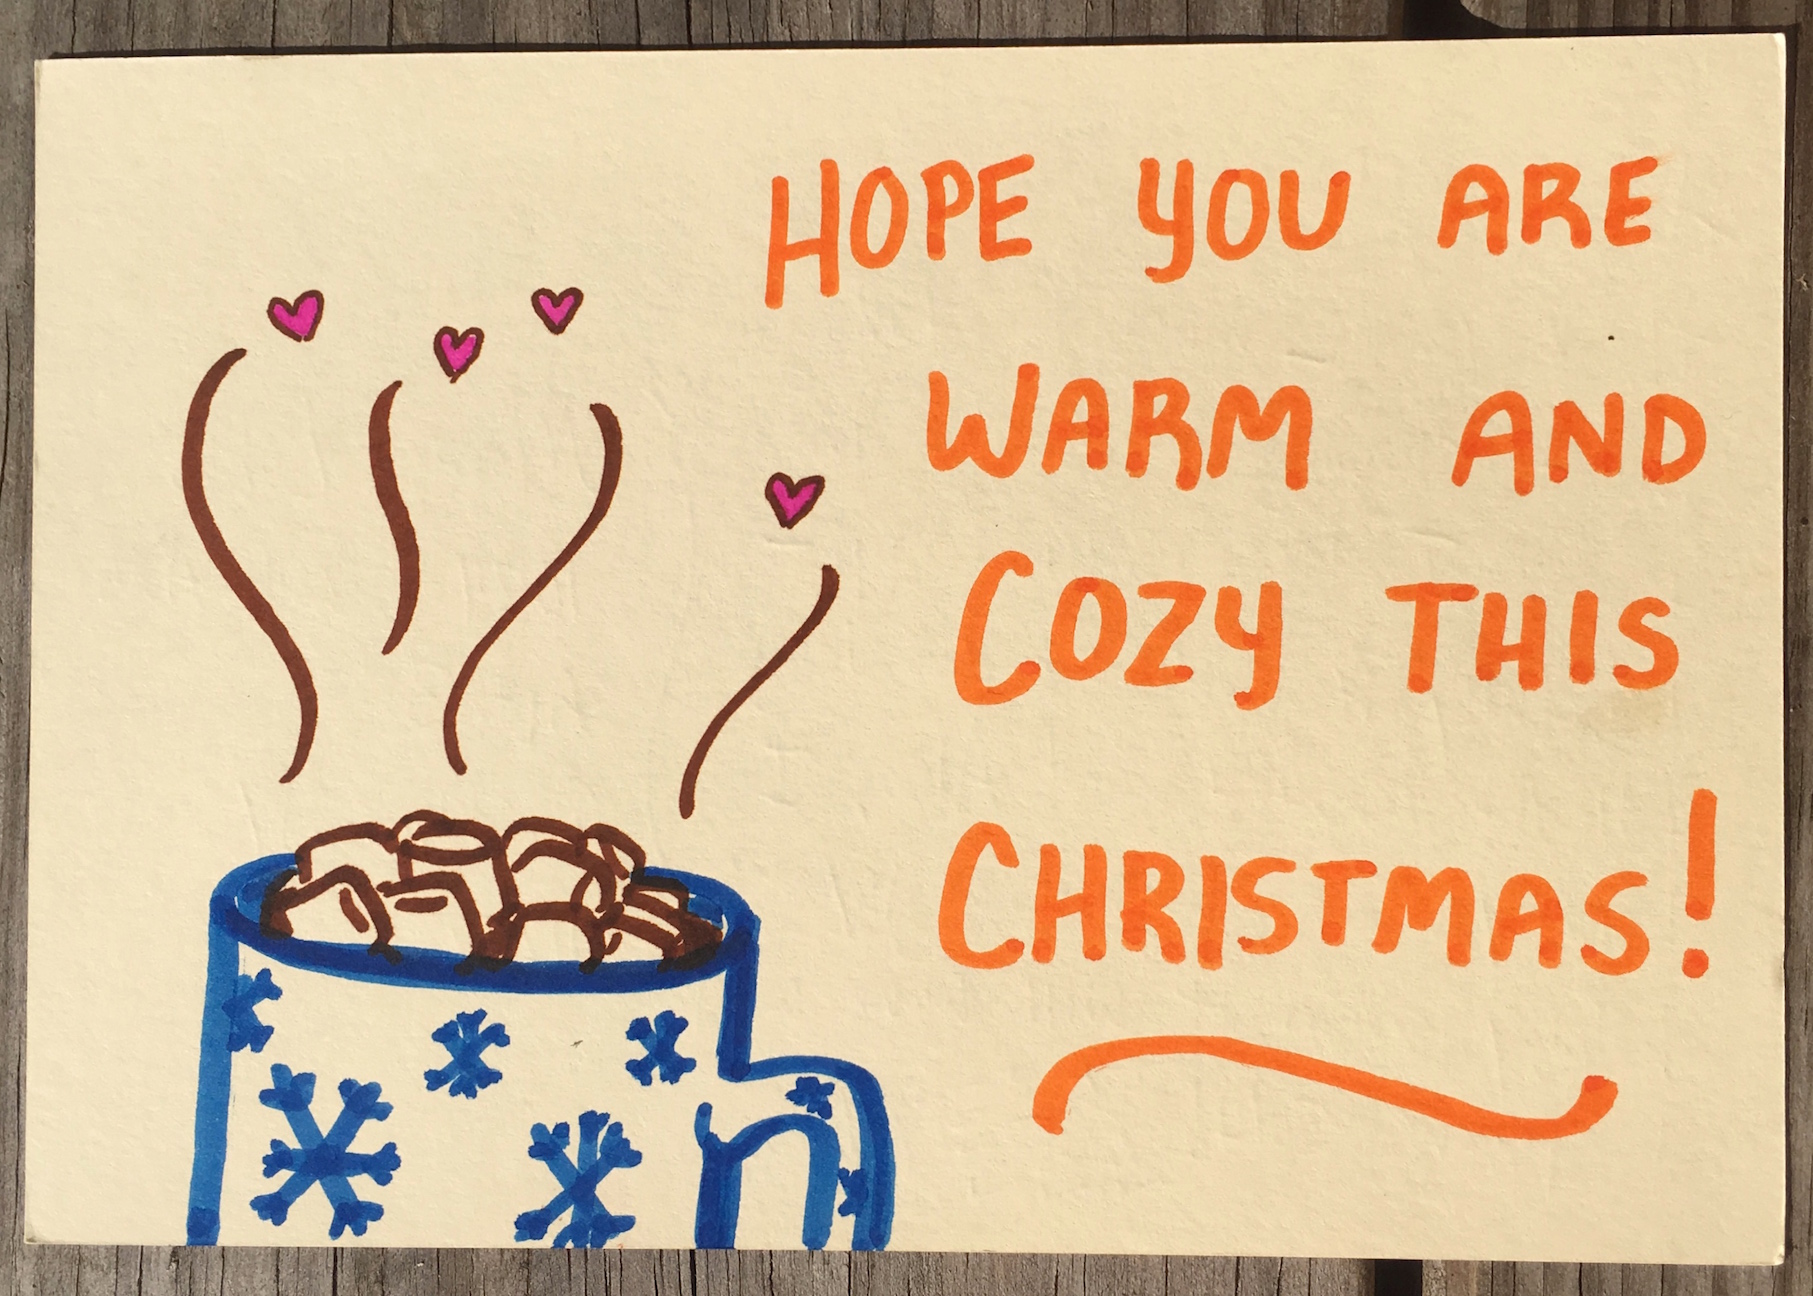 HOPE YOU ARE
WARM AND
COZY THIS
CHRISTMAS!